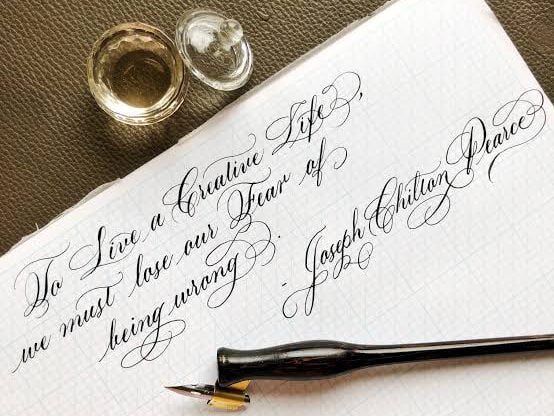 To Live a Creative Life,
we must lose our Fear of
being wrong.
- Joseph Chilton Pearce